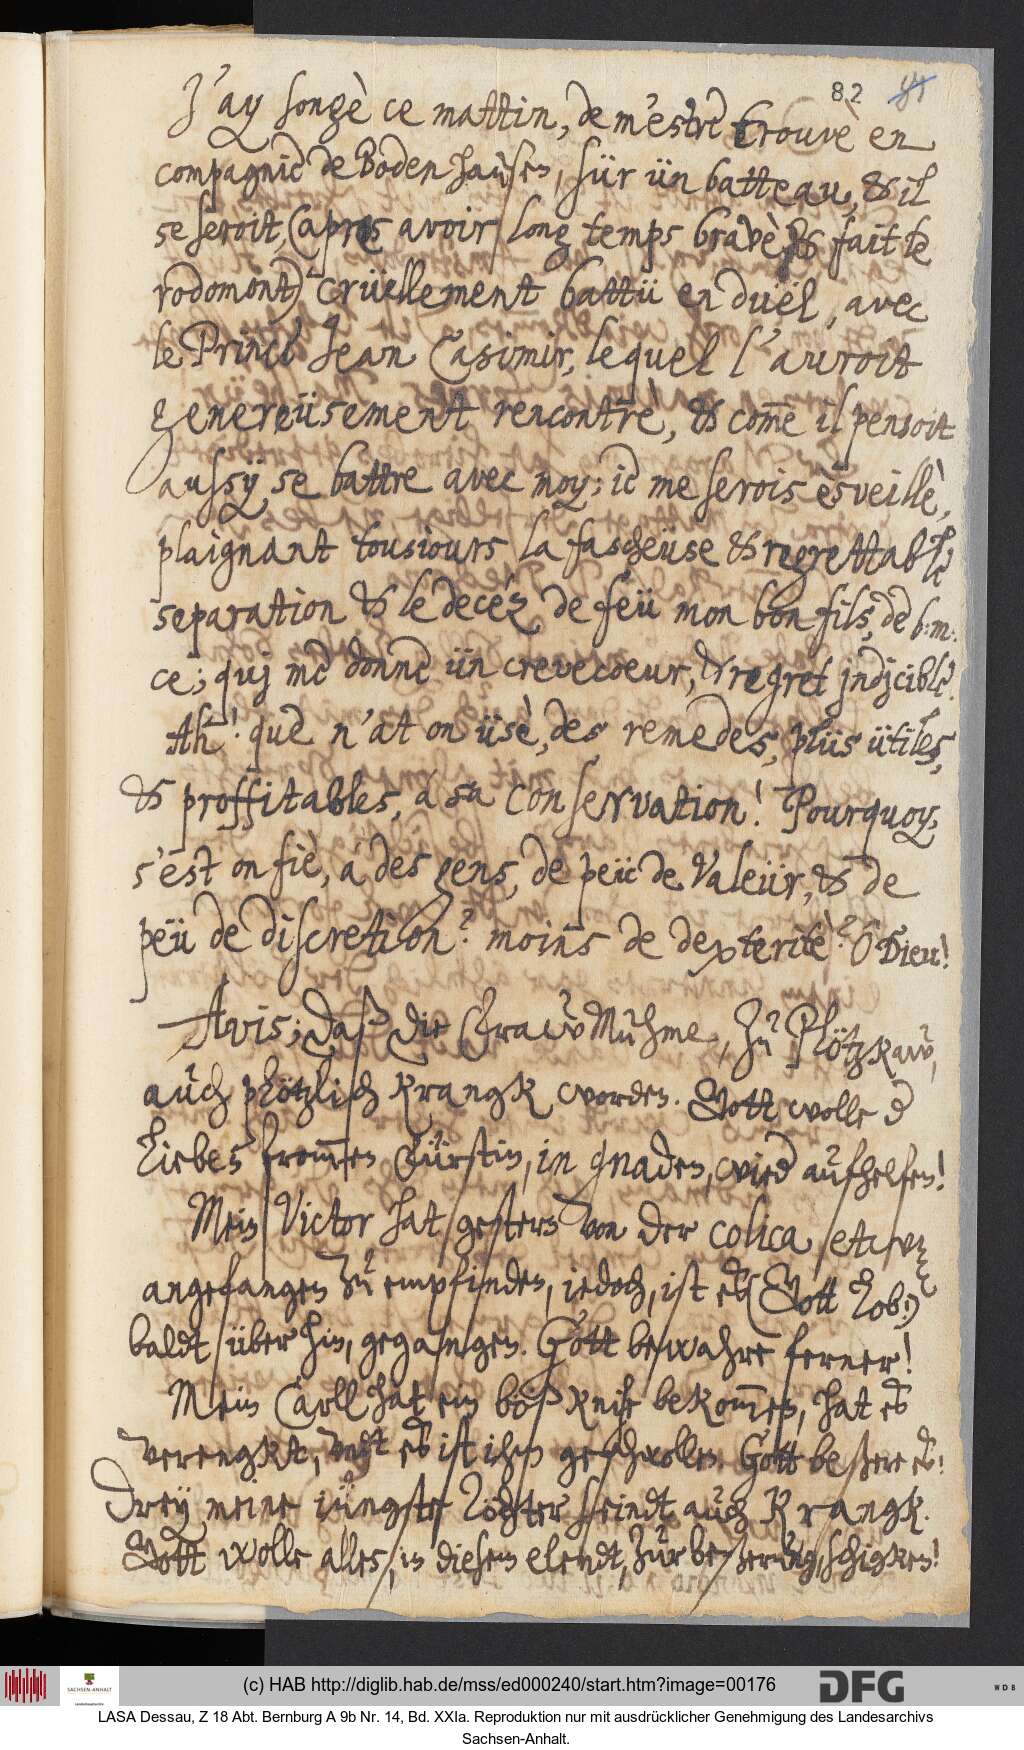 82
J'ay songè ce mattin, de m'estre trouvè en
compagnie de Bodenhausen, sür ün batteau, & il
se seroit, (apres avoir long temps bravè, & fait le
rodomont) crüellement battü en düel, avec
le Prince Jean Casimir, lequel l'auroit
genereüsement rencontrè, & com̅e il pensoit
aussÿ, se battre avec moy; ie me serois esveillè,
plaignant tousiours la fascheüse & regrettable
separation & le decéz de feü mon bon fils, de b: m:
ce; quj me donne ün crevecoeur, & regret jndjcible.
Ah! que n'at on üsè, des remedes, plüs ütiles,
& proffitables, á sa conservation! Pourquoy,
s'est on fiè, á des gens, de peü de Valeür, & de
peü de discretion? moins de dexteritè? Ô Dieu!
Avis; daß die Fraw Muhme, zu Plötzkaw,
auch plötzlich krangk worden. Gott wolle d
Liebes from̅en Fürstin, in gnaden, wied aufhelfen!
Mein Victor hat gestern von der colica etwaz
angefangen zu empfinden, iedoch, ist eß (Gott lob!)
baldt über hin, gegangen. Gott bewahre ferner!
Mein Carll hat ein böß knie bekom̅en, hat eß
verengkt, undt eß ist ihm geschwollen. Gott beßere eß!
Drey meine iüngste Töchter seindt auch krangk.
Gott wolle alles, in diesem elendt, zur beßerung, schigken!
(c) HAB http://diglib.hab.de/mss/ed000240/start.htm?image=00176
SACHSEN-ANHALT
DFG
WDB
LASA Dessau, Z 18 Abt. Bernburg A 9b Nr. 14, Bd. XXIa. Reproduktion nur mit ausdrücklicher Genehmigung des Landesarchivs
Sachsen-Anhalt.